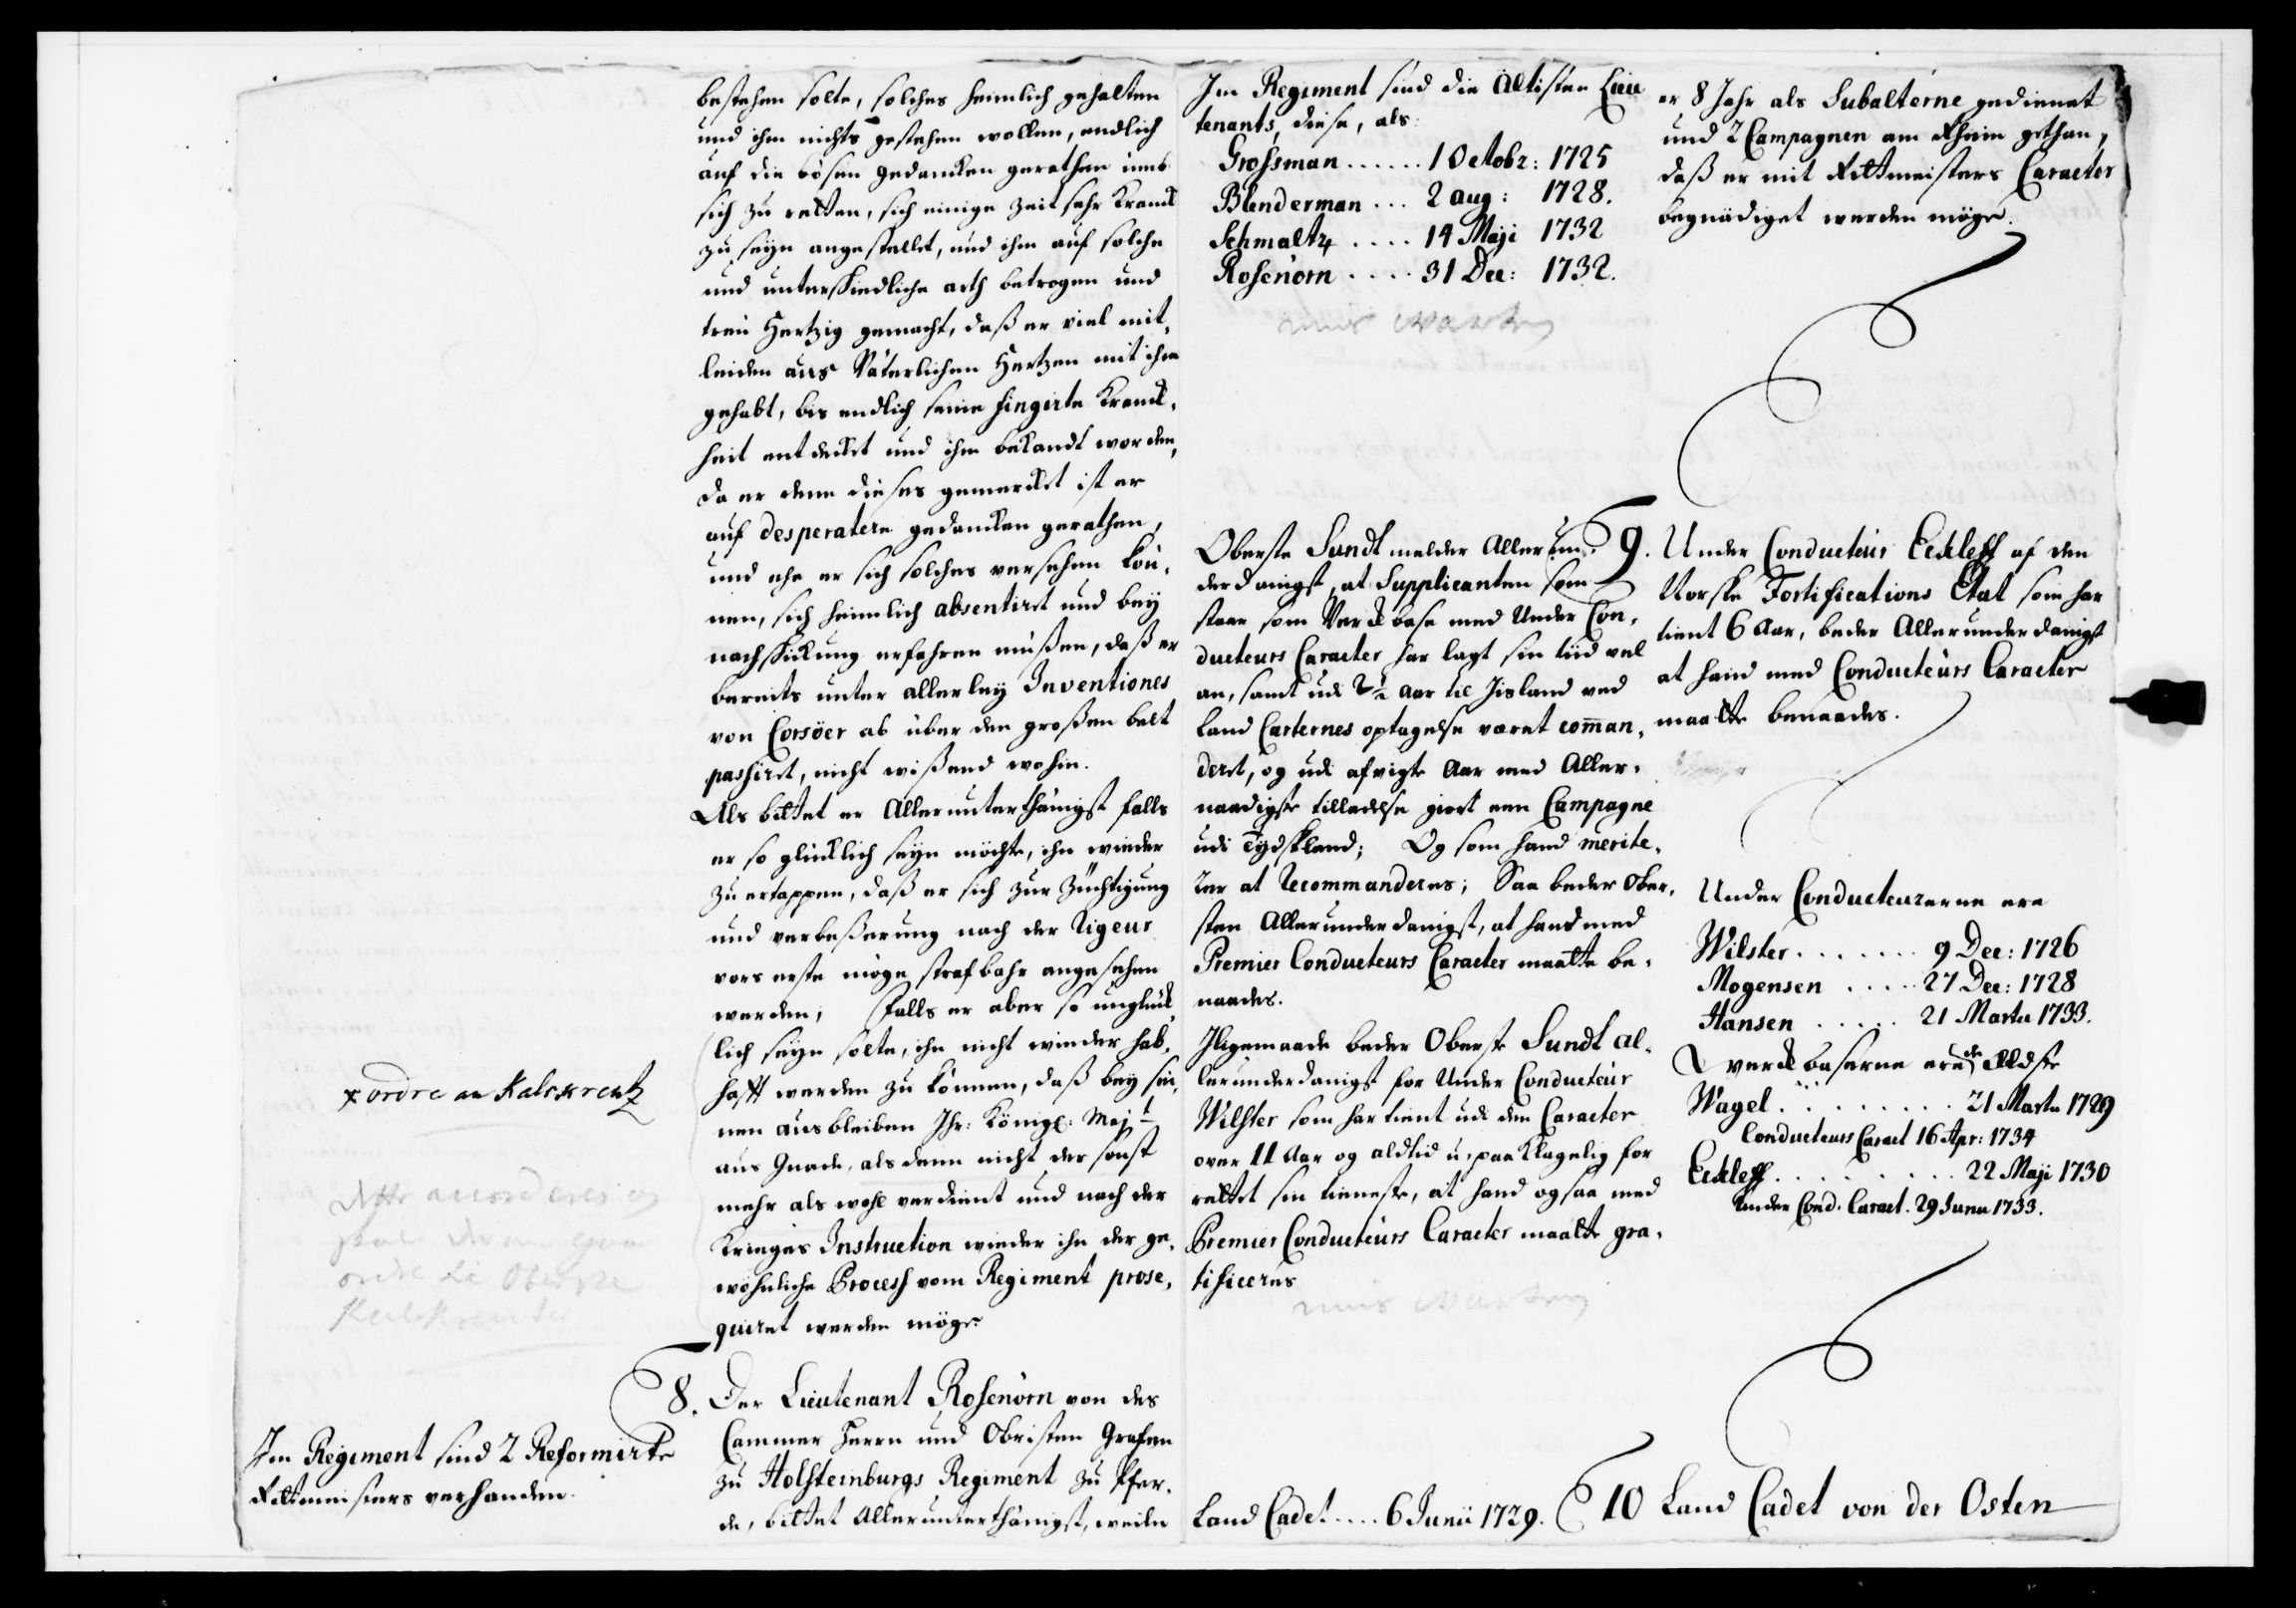 bestehen solte, solches heimlich gehalten
und ihm nichts gestehen wollen, endlich
auf die bösen gedancken gerathen umb
sich zu retten, sich einige zeit sehr Kranck
zu seyn angestellet, und ihm auf solche
und unterschiedliche arth betrogen und
treu Hertzig gemacht, daß er viel mit,
leiden aus Väterlichen Hertzen mit ihm
gehabt, bis endlich seine fingirte Kranck,
heit entdecket und ihm bekandt worden,
da er denn dieses gemercket ist er
auf desperatere gedancken gerathen,
und ehe er sich solches versehen kön,
nen, sich heimlich absentiret und bey
nachschickung erfahren müßen, daß er
bereits unter allerley Inventiones
von Corsöer ab über den großen belt
passiret, nicht wißend wohin.
Als bittet er Allerunterthänigst falls
er so glücklich seyn möchte, ihn wieder
zu ertappen, daß er sich zur Züchtigung
und verbeßerung nach der Rigeur
vors erste möge strafbahr angesehen
werden; falls er aber so unglück,
lich seyn solte, ihn nicht wieder hab,
hafft werden zu können, daß bey sei,
nen ausbleiben Ihr: Königl: Majt
aus Gnade, als denn nicht der sonst
mehr als wohl verdient und nach der
Krieges Instruction wieder ihn der ge,
wöhnliche Process vom Regiment prose,
quiret werden möge.
x ordre an Kalckreutz
ordre til Oberste
8. Der Lieutenant Rosenörn von des
Cammer Herrn und Obristen Grafen
zu Holsteinburgs Regiment zu Pfer,
de, bittet Allerunterthänigst, weile
Im Regiment sind 2 Reformirte
Rittmeisters verhanden.
Im Regiment sind die Ältisten Lieu
tenants, diese, als:
Grossman ...... 1 Octobr: 1725
Blenderman ... 2 aug: 1728.
Schmaltz .... 14 Maji 1732
Rosenörn .... 31 Dec: 1732.
er 8 Jahr als Subalterne gedienet
und 2 Campagnen am Rhein gethan,
daß er mit Rittmeisters Caracter
begnädiget werden möge.
Oberste Sundt melder Allerun,
derdanigst, at Supplicanten som
staar som Verckbase med Under Con,
ducteurs Caracter har lagt sin tiid vel
an, samt udi 2½ Aar til Iisland ved
Land Carternes optagelse været comman,
deret, og udi afvigte Aar med Aller,
naadigste tilladelse giort een Campagne
udi Tydskland; Og som hand merite,
rer at Recommanderes; Saa beder Ober,
sten Allerunderdanigst, at hand med
Premier Conducteurs Caracter maatte be,
naades.
Iligemaade beder Oberste Sundt al,
lerunderdanigst for Under Conducteur
Wilster som har tient udi den Caracter
over 11 Aar og altid u,paaKlagelig for
rettet sin tieneste, at hand ogsaa med
Premier Conducteurs Caracter maatte gra,
tificeres
9. Under Conducteur Eckleff af den
Norske Fortifications Etat som har
tient 6 Aar, beder Allerunderdanigst
at hand med Conducteurs Caracter
maatte benaades.
Under Conducteurerne ere
Wilster ....... 9 Dec: 1726
Mogensen ..... 27 Dec: 1728
Hansen ..... 21 Martii 1733.
Verckbaserne ere de Eldste
Wagel ........ 21 Martii 1729
Conducteurs Caract 16 Apr: 1734
Eckleff ........ 22 Maji 1730
Under Cond. Caract. 29 Junii 1733.
Land Cadet .... 6 Junii 1729.
10 Land Cadet von der Osten